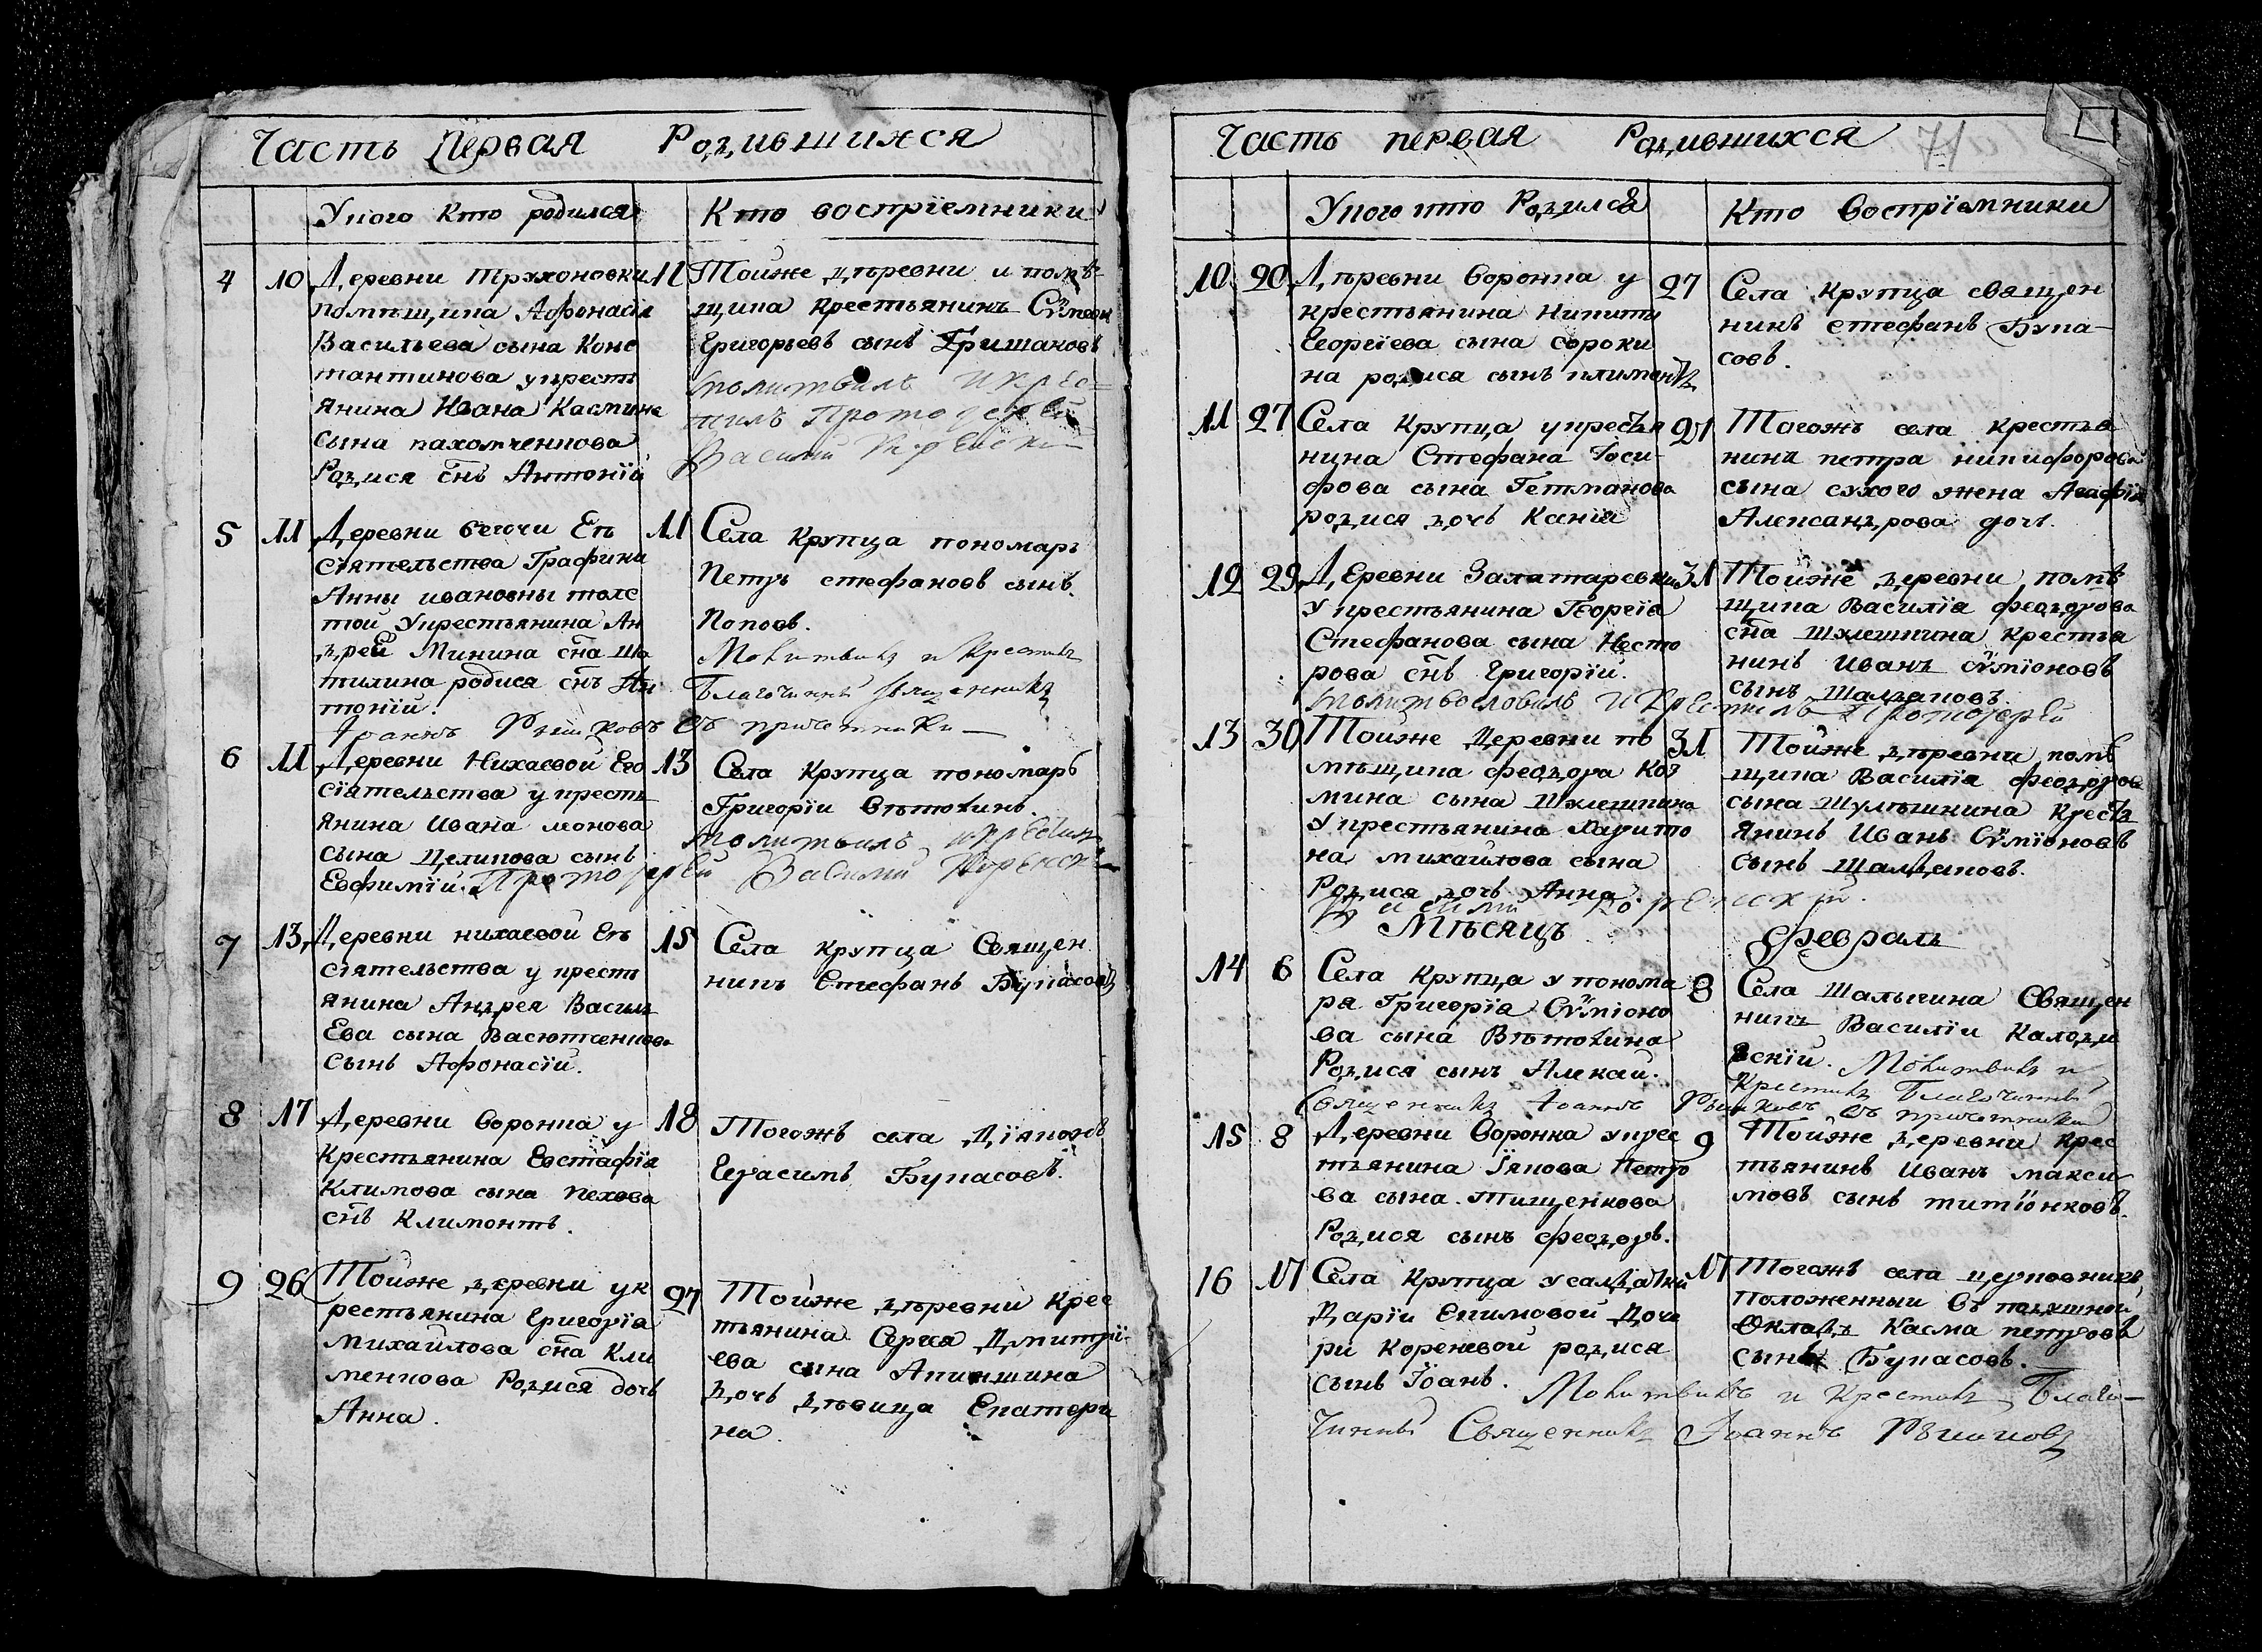 Часть Первая Родившихся
Укого Кто родился Кто востріемники
4 10 Деревни Трухоновки
помѣщика Афонасія
Васильева сына Конс
тантинова укрестъ
янина Ивана Касмина
сына пахомченкова
Родися сн҃ъ Антоній
11 Тойже дѣревни и помѣ-
щика Крестьянинъ Сѵмеон
Григорьевъ сынъ Гришаковъ
молитвилъ и крес-
тилъ Протоіерей
Василий
5 11 Деревни бегочи Еѣ
сіятельства Графини
Анны ивановны толс
той Укрестьянина Ан
дрей Минина сн҃а
родися сн҃ъ Ан
тоній.
11 Села Крупца пономарь
Петръ стефановъ сынъ
Поповъ.
Молитвилъ и Крестилъ
Благочинный священникъ
Іоаннъ съ причетники
6 11 Деревни Нихаевой Его
сіятельства у кресть
янина Ивана
сына Целикова сынъ
Евфимій.
13 Села Крупца пономарь
Григорій Вѣтохинъ.
молитвилъ и крестилъ
Протоіерей Василий
7 13 Деревни нихаевой Еѣ
сіятельства у крест
янина Андрея Василь
Ева сына Васютченкова
Сынъ Афонасій.
15 Села крупца Священ
никъ Стефанъ Букасовъ
8 17 Деревни Воронка у
Крестьянина Евстафія
Климова сына пехова
сн҃ъ Климонтъ.
18 Тогожъ села Діяконъ
Герасимъ Букасовъ.
9 26 Тойже деревни ук
рестьянина Григорія
михайлова сн҃а Кли
менкова Родися дочь
Анна.
27 Тойже дѣревни Крес
тьянина Сергея Дмитрі-
ева сына Апикшина
дочь дѣвица Екатери
на.
Часть первая Родившихся 71
Укого кто Родился Кто Востріемники
10 20 Дѣревни Воронка у
крестьянина Никиты
Георгіева сына сороки
на родися сынъ климентъ
27 Села Крупца священ
никъ стефанъ Бука-
совъ.
11 27 Села Крупца укрестья
нина Стефана Іоси-
фова сына Гетманова
родися дочь Ксенія
27 Тогожъ села крестья
нина петра никифорова
сына сухого жена Агафія
Александрова дочь.
12 29 Деревни Залатаревки
У крестьянина Георгія
Стефанова сына Несто
рова сн҃ъ Григорій.
31 Тойже деревни помѣ
щика Василія феодорова
сн҃а Шулешкина крестья
нинъ Иванъ сѵміоновъ
сынъ Шалдаповъ.
молитвословилъ и крестилъ Протоіерей
13 30 Тойже Деревни по
мѣщика феодора Коз
мина сына Шулешкина
У крестьянина Харито
на михайлова сына
Родися дочь Анна.
31 Тойже дѣревни помѣ
щика Василія феодорова
сына Шулѣшкина Кресть
янинъ Иванъ Сѵміоновъ
сынъ Шалдаповъ.
Василий
Мѣсяцъ Февраль
14 6 Села Крупца у понома
ря Григорія Сѵміоно
ва сына Вѣтохина
Родися сынъ Алексий.
8 Села Шалыгина Священ
никъ Василій Калоди
вскій. Молитвилъ и
Крестилъ Благочинный
Священникъ Іоаннъ съ причетники
15 8 Деревни Воронка укрес
тьянина Іякова Петро
ва сына Тищенкова
Родися сынъ феодоръ.
9 Тойже деревни крес
тьянинъ Иванъ макси
мовъ сынъ титіонковъ.
16 17 Села Крупца у салдатки
Даріи Екимовой Доче
ри Кореневой родися
сынъ Іоанъ.
17 Тогожъ села церковникъ
Положенный въ подушной
Окладъ Касма петровъ
сынъ Букасовъ.
Молитвилъ и крестилъ Благо-
чинный Священникъ Іоаннъ